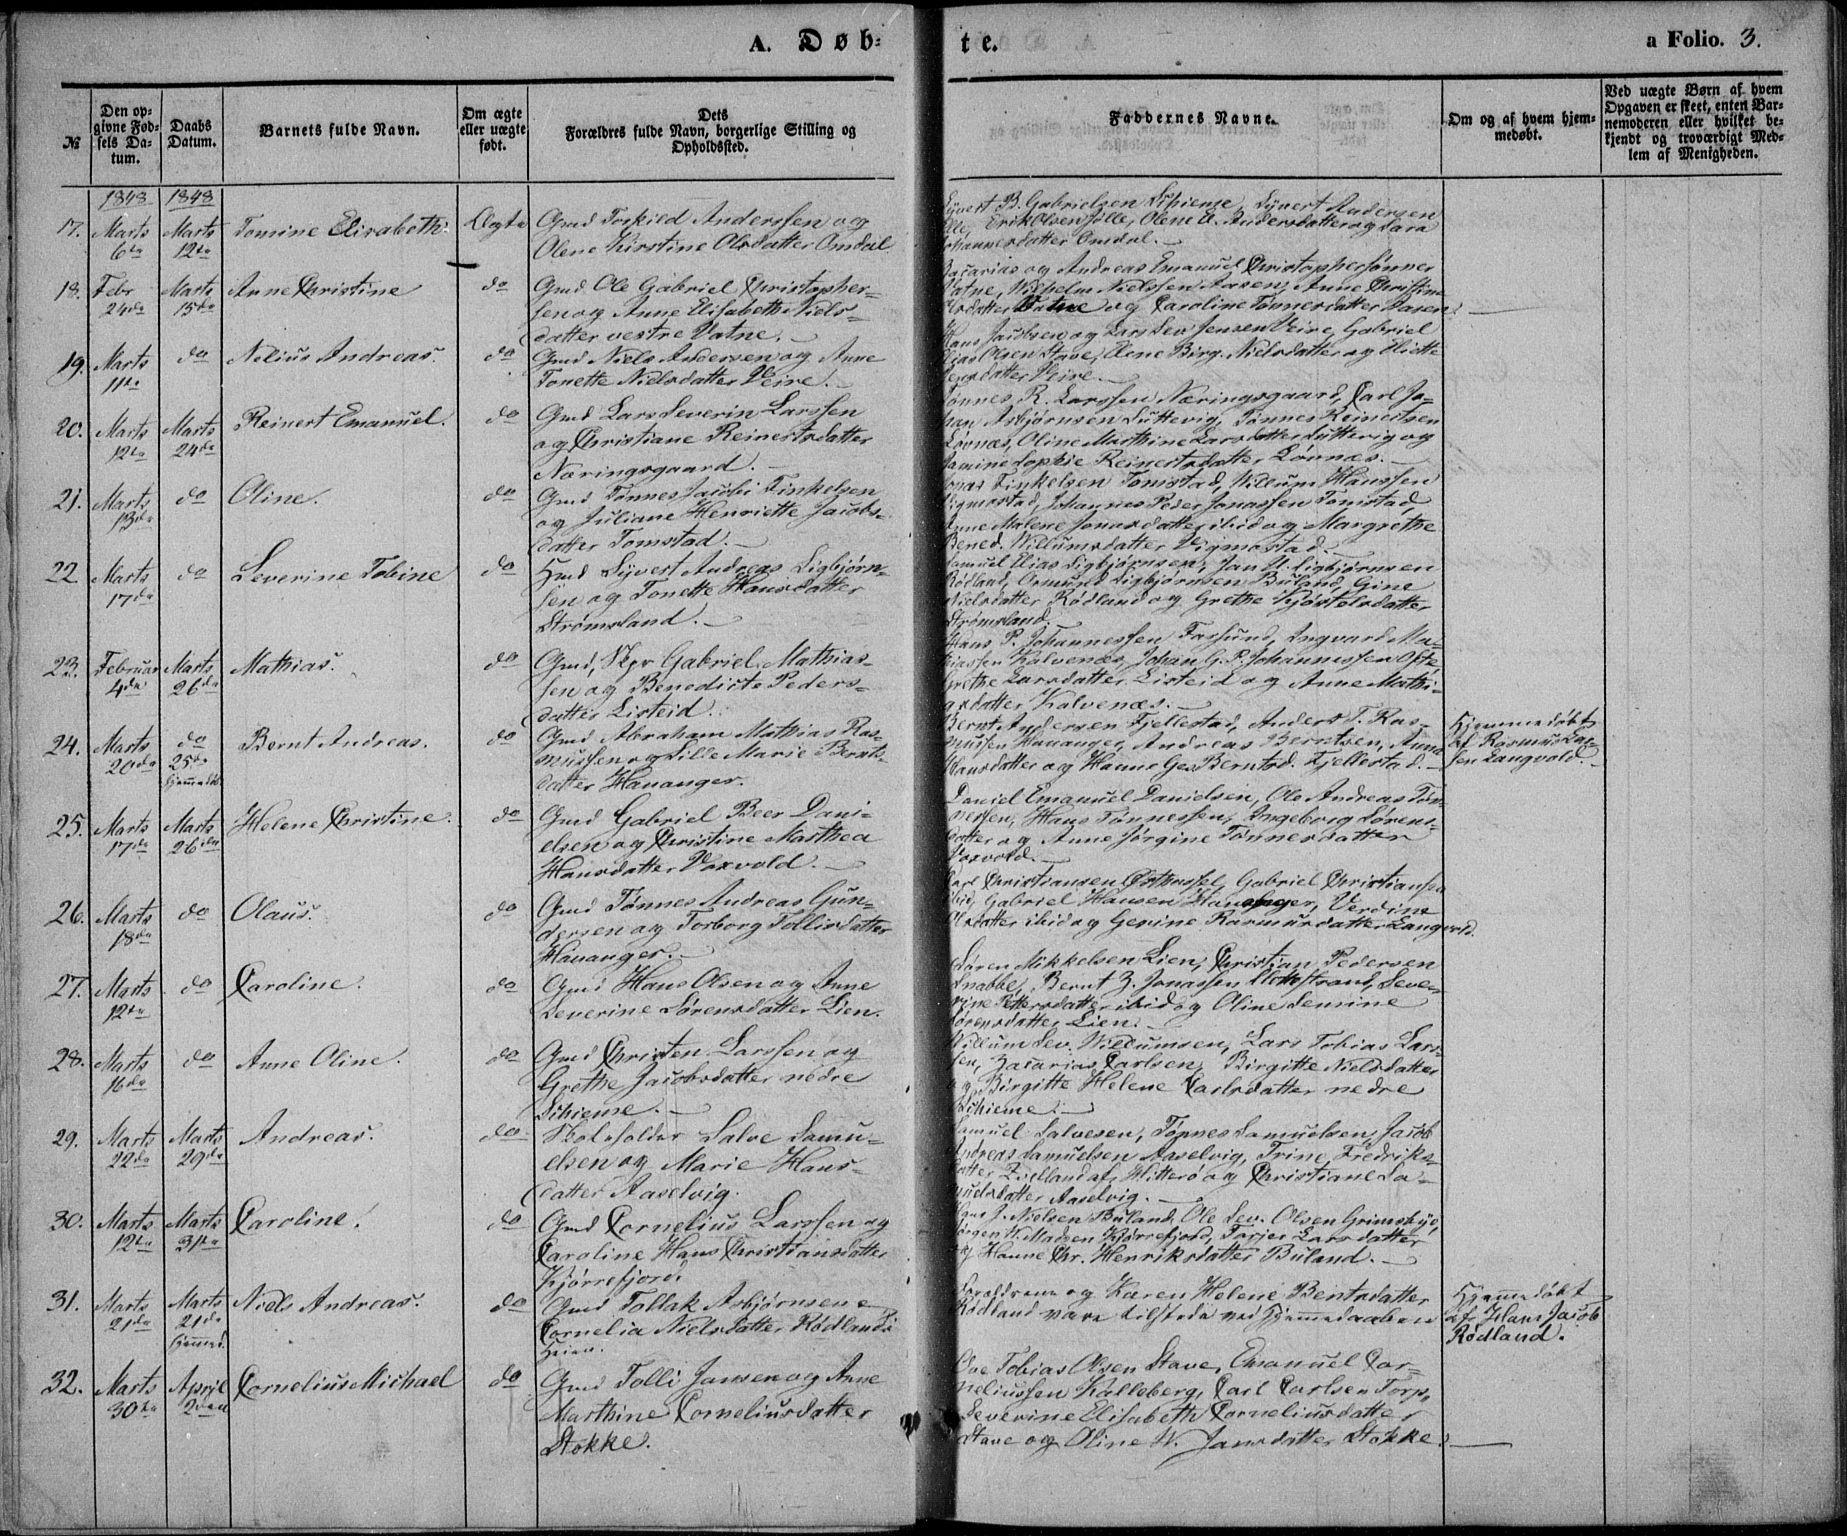 A. Døb-
te.
a Folio. 3.
№
Den op-
givne Fød-
sels Da-
tum.
Daabs
Datum.
Barnets fulde Navn.
Om ægte
eller uægte
født.
Dets
Forældres fulde Navn, borgerlige Stilling og
Opholdssted.
Faddernes Navne.
Om og af hvem hjem-
medøbt.
Ved uægte Børn af hvem
Opgaven er skeet, enten Bar-
nemoderen eller hvilket be-
kjendt og troværdigt Med-
lem af Menigheden.
1848 1848
17. Marts 6te Marts 12te Tomine Elisabeth. Ægte
Gmd Torkild Anderssen og
Olene Kirstine Olsdatter Omdal
B. Gabrielsen Schieme, Sÿvert Andersen
Erik Olsen Jølle, Olene A. Andersdatter og Sara
Johannesdatter Omdal.
18. Febr 24de Marts 15de Anne Christine do
Gmd Ole Gabriel Christopher-
sen og Anne Elisabeth Niels-
datter vestre Vatne.
Zacarias og Andreas Emanuel Christophersønner
Vatne, Wilhelm Nielssen Aasen, Anne Christine
Olsdatter Vatne og Caroline Tønnesdatter Aasen.
19. Marts 11te do Nelius Andreas. do
Gmd Niels Andersen og Anne
Tonette Nielsdatter Veire.
Hans Jacobsen og Lars Sev Jensen Veire, Gabriel
Elias Olsen Stave, Elene Birg. Nielsdatter og Oliette
Jensdatter Veire.
20. Marts 12te Marts 24de Reinert Emanuel. do
Gmd Lars Severin Larssen
og Christiane Reinertsdatter
Næringsgaard.
Tønnes R. Larssen Næringsgaard, Carl Jo-
han Asbjørnsen Luttevig, Tønnes Reinertsen
Lövnæs, Oline Marthine Larsdatter Luttevig og
Jamine Sophie Reinertsdatter Lövnæs.
21. Marts 13de do Oline. do
Gmd Tønnes Jacobi Tinkelsen
og Juliane Henriette Jacobs-
datter Tomstad.
Jonas Tinkelsen Tomstad, Willum Hanssen
Vigmostad, Johannes Peder Jonassen Tomstad,
Anne Malene Jonasdatter ibid og Margrethe
Bened. Willumsdatter Vigmostad.
22 Marts 17de do Severine Tobine do
Hmd Sÿvert Andreas Sigbjørn-
sen og Tonette Hansdatter
Strømsland.
Samuel Elias Sigbjørnsen, Jan A. Sigbjørnsen
Rødland, Osmund Sigbjørnsen Buland, Gine
Nielsdatter Rødland og Grethe Kjøstelsdatter
Strømsland.
23. Februar 4de Marts 26de Mathias. do
Gmd, Skpr Gabriel Mathias-
sen og Benedicte Peders-
datter Listeid.
Hans P. Johannessen Farsund, Ingvard Ma-
thiassen Kalvenæs, Johan G. P. Johannessen Ofte
Grethe Larsdatter Listeid og Anne Mathi-
asdatter Kalvenæs.
24. Marts 20de do 25de hjemmedöbt Bernt Andreas. do
Gmd Abraham Mathias Ras-
mussen og Sille Marie Bernts-
datter Hananger.
Bernt Andersen Fjellestad, Anders T. Ras-
mussen Hananger, Andreas Berntsen, Anne
Hansdatter og Hanne Ges Berntsd. Fjellestad.
Hjemmedöbt
af Rasmus Lar-
sen Langvold
25. Marts 17de Marts 26de Helene Christine. do
Gmd Gabriel Beer Dani-
elsen og Christine Marthea
Hansdatter Voxvold.
Daniel Emanuel Danielsen, Ole Andreas Tøn-
nessen, Hans Tønnessen, Ingeborg Sørens-
datter og Anne Jørgine Tønnesdatter
Voxvold.
26. Marts 18de do Olaus. do
Gmd Tønnes Andreas Gun-
dersen og Torborg Tollisdatter
Hananger.
Carl Christiansen Østhassel, Gabriel Christiansen
ibid, Gabriel Hansen Hananger, Verdine
Olsdatter ibid og Gesine Rasmusdatter Langvold.
27. Marts 12te do Caroline. do
Gmd Hans Olsen og Anne
Severine Sørensdatter Lien.
Søren Mikkelsen Lien, Christian Pedersen
Snabbe, Bernt Z. Jonassen Slottestrand, Seve-
rine Pettersdatter ibid og Oline Semine
Sørensdatter Lien.
28. Marts 16de do Anne Oline. do
Gmd Christen Larssen og
Grethe Jacobsdatter nedre
Schieme.
Willum Sev. Willumsen, Lars Tobias Lars-
sen, Zacarias Carlsen, Birgitte Nielsdatter
og Birgitte Helene Carlsdatter nedre
Schieme.
29. Marts 22de Marts 29de Andreas. do
Skoleholder Salve Samu-
elsen og Marie Hans-
datter Aaselvig.
Samuel Salvesen, Tønnes Samuelsen, Jacob
Andreas Samuelsen Aaselvig, Trine Fredriks-
datter af Hitterö og Christiane Sa-
muelsdatter Aaselvig.
30. Marts 12te Marts 31te Caroline. do
Gmd Cornelius Larssen og
Caroline Hans Christiansdatter
Kjørrefjord.
Hans J. Nielsen Buland, Ole Sev. Olsen Grimsbÿe,
Jørgen W. Madsen Kjørrefjord, Tarjer Larsdatter
og Hanne Chr. Henriksdatter Buland.
31. Marts 21de Marts 21de hjemmed. Niels Andreas. do
Gmd Tollak Asbjørnsen
Cornelia Nielsdatter Rødlands
Heien.
Forældrene og Karen Helene Berntsdatter
Rødland vare tilstede ved Hjemmedaaben
Hjemmedöbt
af Hans Jacob
Rødland.
32. Marts 30te April 2den Cornelius Michael do
Gmd Tolli Jansen og Anne
Marthine Corneliusdatter
Stokke.
Ove Tobias Olsen Stave, Emanuel Cor-
neliussen Kalleberg, Carl Carlsen Torp,
Severine Elisabeth Corneliusdatter
Stave og Oline W. Jansdatter Stokke.